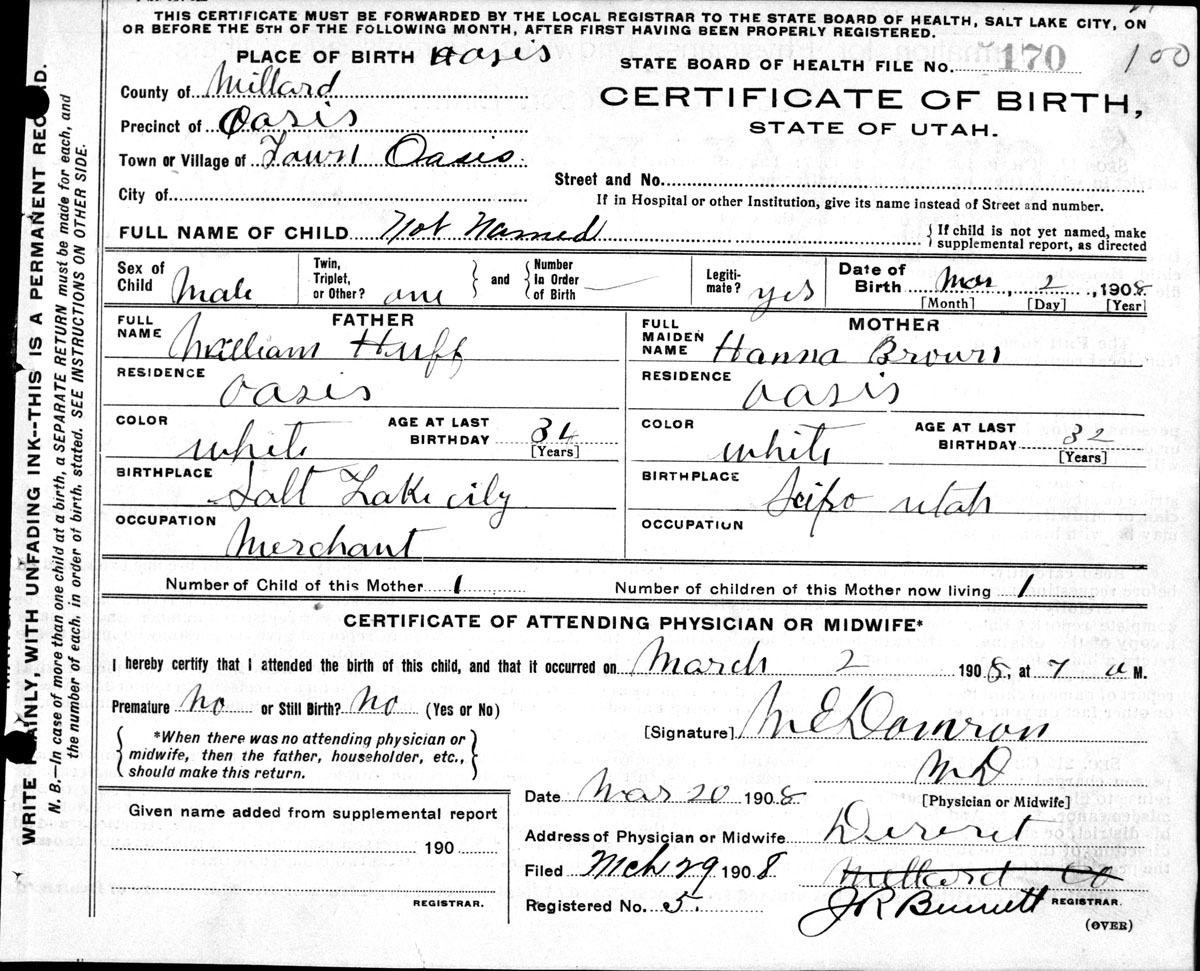 THIS CERTIFICATE MUST BE FORWARDED BY THE LOCAL REGISTRAR TO THE STATE BOARD OF HEALTH, SALT LAKE CITY, ON
OR BEFORE THE 5TH OF THE FOLLOWING MONTH, AFTER FIRST HAVING BEEN PROPERLY REGISTERED.
PLACE OF BIRTH Oasis
STATE BOARD OF HEALTH FILE NO. 170 100
County of Millard
CERTIFICATE OF BIRTH,
STATE OF UTAH.
Precinct of Oasis
Town or Village of Town Oasis
Street and No.
City of
If in Hospital or other Institution, give its name instead of Street and number.
FULL NAME OF CHILD Not Named
{ If child is not yet named, make
supplemental report, as directed
Sex of Child Male
Twin, Triplet, or Other? one } and { Number In Order of Birth —
Legiti-mate? yes
Date of Birth Mar, 2, 1908
[Month] [Day] [Year]
FATHER
FULL NAME William Huff
RESIDENCE Oasis
COLOR white AGE AT LAST BIRTHDAY 34 [Years]
BIRTHPLACE Salt Lake city
OCCUPATION Merchant
MOTHER
FULL MAIDEN NAME Hanna Brown
RESIDENCE Oasis
COLOR white AGE AT LAST BIRTHDAY 32 [Years]
BIRTHPLACE Scipo utah
OCCUPATION
Number of Child of this Mother 1 Number of children of this Mother now living 1
CERTIFICATE OF ATTENDING PHYSICIAN OR MIDWIFE*
I hereby certify that I attended the birth of this child, and that it occurred on March 2 1908, at 7 a M.
Premature No or Still Birth? No (Yes or No)
{ *When there was no attending physician or
midwife, then the father, householder, etc.,
should make this return. }
[Signature] M E Domron
M D
[Physician or Midwife]
Date Mar 20 1908
Address of Physician or Midwife Dereret
Millard Co
Filed Mch 29 1908
Registered No. 5.
J R Bennett REGISTRAR.
(OVER)
Given name added from supplemental report
190
REGISTRAR.
WRITE PLAINLY, WITH UNFADING INK--THIS IS A PERMANENT RECORD.
N. B.—In case of more than one child at a birth, a SEPARATE RETURN must be made for each, and
the number of each, in order of birth, stated. SEE INSTRUCTIONS ON OTHER SIDE.